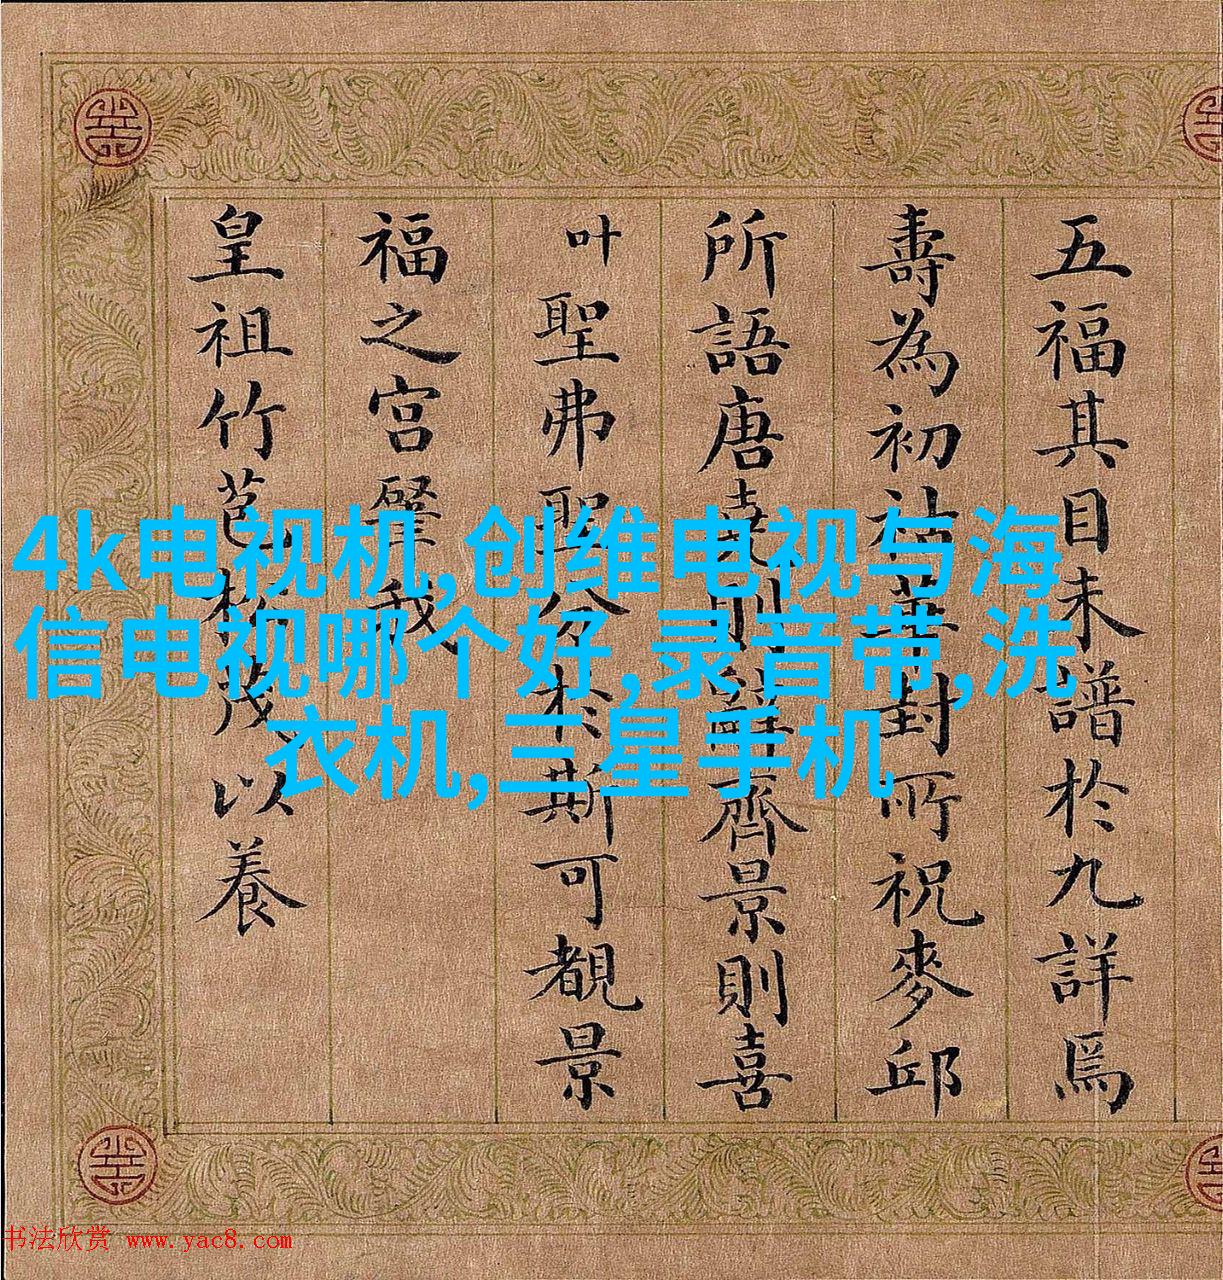 五福其目未譜於九詳焉
壽為初祜華封所祝麥邱
所語唐堯則辭齊景則喜
叶
聖弗聖分於斯可覩景
福之宮肇我
皇祖竹苞松茂以養
4k电视机,创维电视与海
信电视哪个好,录音带,洗
衣机,三星手机
书法欣赏 www.yac8.com